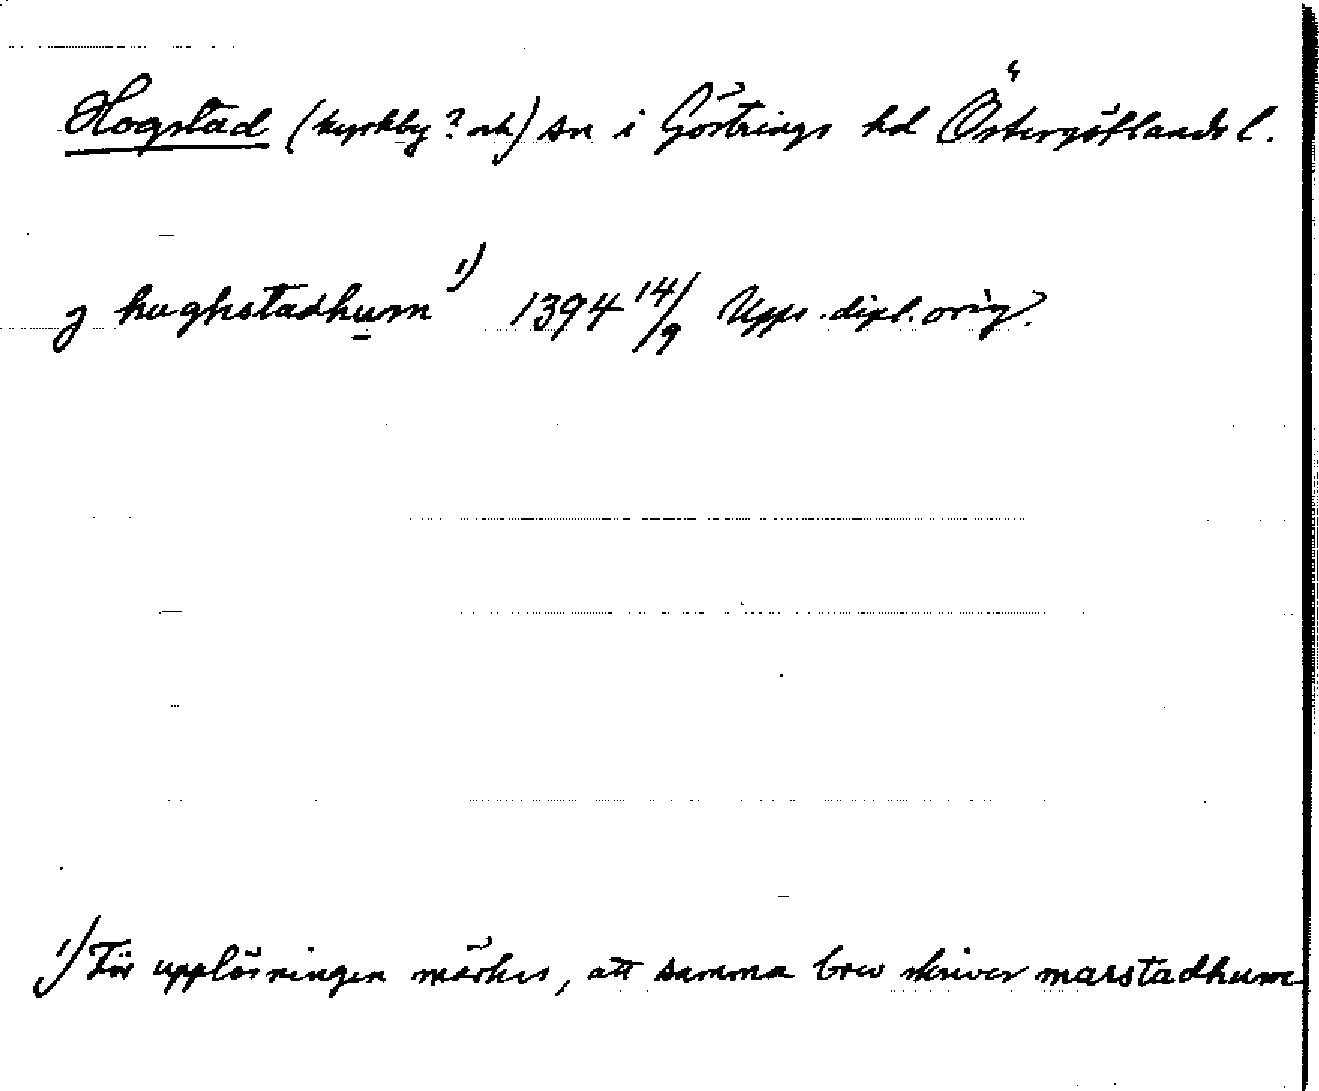 Hogstad (kyrkby? och) sn i Göstrings hd Östergötlands l.
j hughstadhum 1) 1394 14/9 Upps. dipl. orig.
1) För upplösningen märkes, att samma brev skriver marstadhum